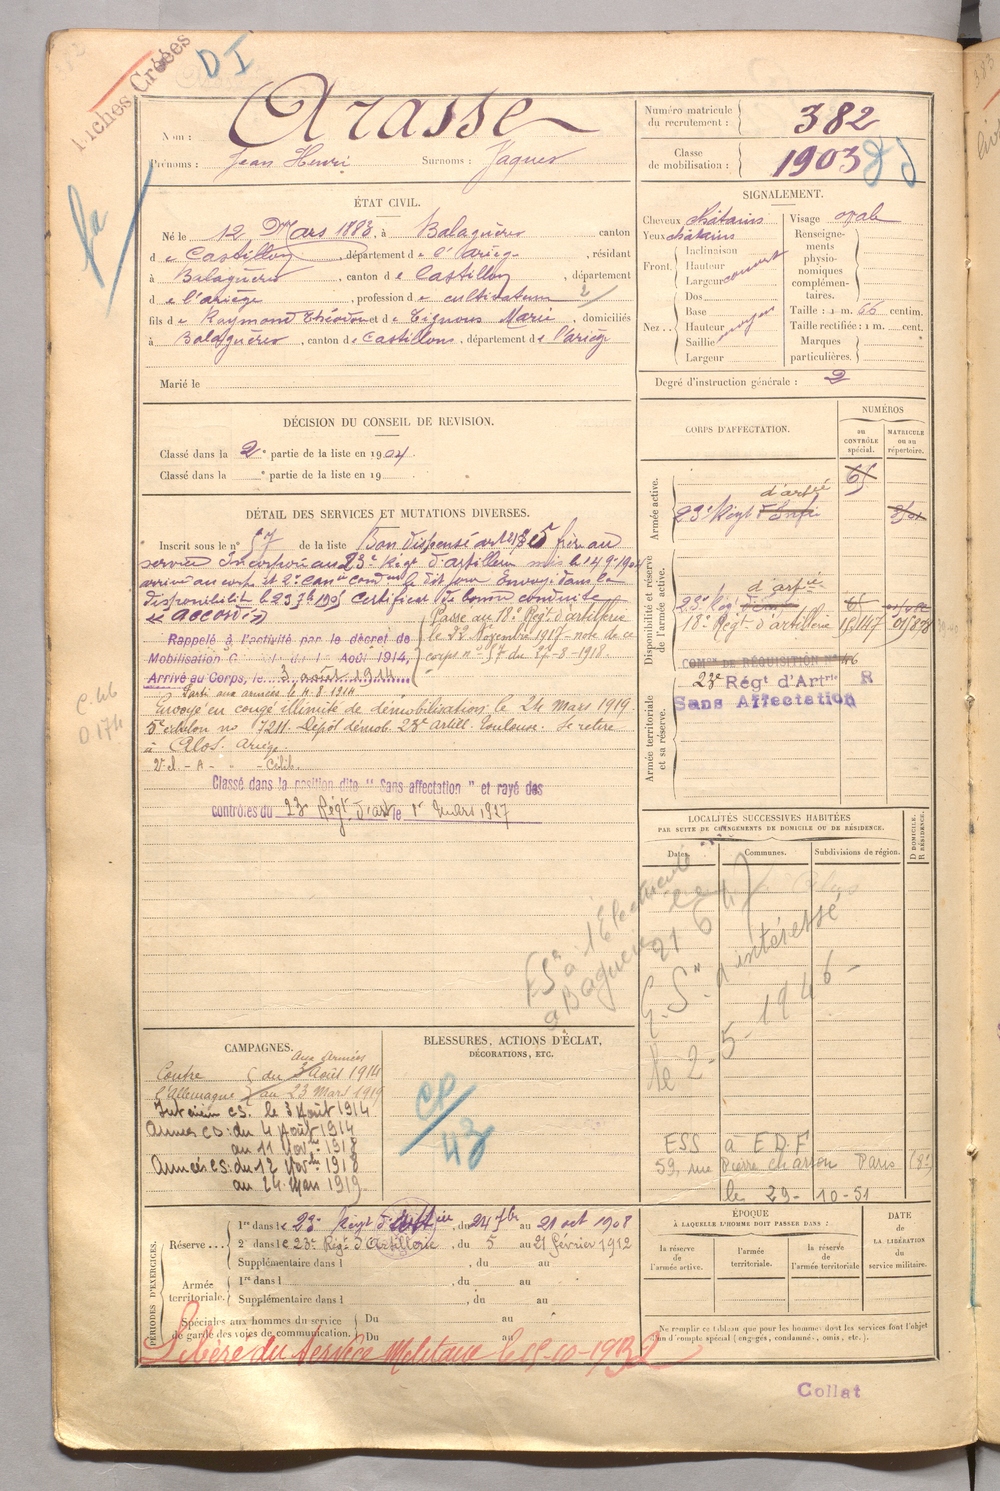 Fiches Créées
DI
Nom : Arasse
Prénoms : Jean Henri Surnoms : Jaques
Numéro matricule du recrutement : 382
Classe de mobilisation : 1903
ÉTAT CIVIL.
Né le 12 Mars 1883, à Balaguères canton
de Castillon, département de l'Ariège, résidant
à Balaguères, canton de Castillon, département
de l'ariège, profession de cultivateur
fils de Raymond Théodore et de Eignous Marie, domiciliés
à Balaguères, canton de Castillons, département de l'ariège
Marié le
SIGNALEMENT.
Cheveux châtains
Yeux châtains
Front. Inclinaison
Hauteur
Largeur couvert
Nez .. Dos
Base
Hauteur moyen
Saillie
Largeur
Visage ovale
Renseignements physionomiques complémentaires.
Taille : 1 m. 66 centim.
Taille rectifiée : 1 m. cent.
Marques particulières.
Degré d'instruction générale : 2
DÉCISION DU CONSEIL DE REVISION.
Classé dans la 2e partie de la liste en 1904.
Classé dans la e partie de la liste en 19
CORPS D'AFFECTATION.
NUMÉROS
au CONTRÔLE spécial.
MATRICULE ou au répertoire.
Armée active.
65
d'artie
23e Régt d'Infie
Disponibilité et réserve de l'armée active.
d'artie
23e Régt
18e Régt d'artillerie
Armée territoriale et sa réserve.
COMon DE RÉQUISITION No 46
23e Régt d'Artrie R
Sans Affectation
DÉTAIL DES SERVICES ET MUTATIONS DIVERSES.
Inscrit sous le n° 17 de la liste Bon dispensé art frère au
service Incorporé au 23e Régt d'artillerie
arrivé au corps et 2e canr condr le dit jour Envoyé dans la
disponibilité le 23 7bre 1905 Certificat de bonne conduite
« accordé »
Passé au 18e Régt d'artillerie
le 22 Novembre 1917 - note de ce
corps n° 57 du 27-8-1918.
Rappelé à l'activité par le décret de
Mobilisation Générale du 1er Août 1914,
Arrivé au Corps, le 3 août 1914
Parti aux armées le 4.8.1914
Envoyé en congé illimité de démobilisation le 24 mars 1919
5e échelon no 17211. Dépôt démob. 23e artill. Toulouse. Se retire
à Alos. Ariège.
Classé dans la position dite " Sans affectation " et rayé des
contrôles du 23e Régt d'art le 1er Mars 1927
LOCALITÉS SUCCESSIVES HABITÉES
PAR SUITE DE CHANGEMENTS DE DOMICILE OU DE RÉSIDENCE.
Dates. Communes. Subdivisions de région. D DOMICILE. R RÉSIDENCE.
ESn à l'Electricité
à Bagneux le
21 6 47
E.Sn d'intéressé
le 2-5-1946-
ESS à E D F
59, rue Pierre Charron Paris (8e)
le 29-10-51
CAMPAGNES.
Aux Armées
Contre du 3 Août 1914
l'Allemagne au 23 Mars 1919
Intérieur CS. le 3 Août 1914
Armées CD: du 4 Août 1914
au 11 Novbre 1918
Armées CS: du 12 Novbre 1918
au 24 Mars 1919
BLESSURES, ACTIONS D'ÉCLAT,
DÉCORATIONS, ETC.
43
PÉRIODES D'EXERCICES.
Réserve... 1re dans le 23e Régt d'artie, du 24 7bre au 21 oct 1908
2e dans le 23e Régt d'Artillerie, du 5 au 21 février 1912
Supplémentaire dans l , du au
Armée territoriale. 1re dans l , du au
Supplémentaire dans l , du au
Spéciales aux hommes du service de garde des voies de communication. Du au
Du au
Libéré du Service Militaire le 15-10-1932
ÉPOQUE
À LAQUELLE L'HOMME DOIT PASSER DANS :
la réserve de l'armée active.
l'armée territoriale.
la réserve de l'armée territoriale
DATE de LA LIBÉRATION du service militaire.
Ne remplir ce tableau que pour les hommes dont les services font l'objet
d'un décompte spécial (engagés, condamnés, omis, etc.).
Collat